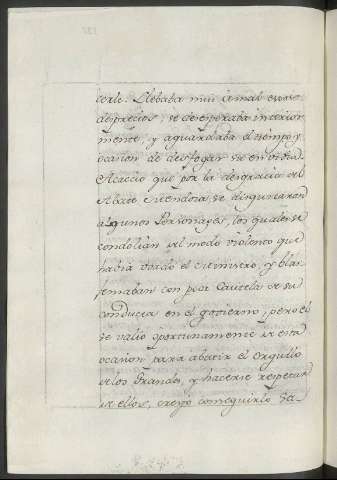 cerle. Llebaba mui à mal estos
desprecios, se desesperaba interior
mente, y aguardaba el tiempo y
ocasion de desfogar su
Acaecio que por la desgracia del
Abate se disgustaron
algunos Personages, los quales se
condolian del modo violento que
havia usado el Ministro, y blas
femaban con poca cautela de su
conducta en el govierno, pero el
se valio oportunamente de esta
ocasion para abatir el orgullo
de los Grandes, y hacerse respetar
de ellos, creyó conseguirlo